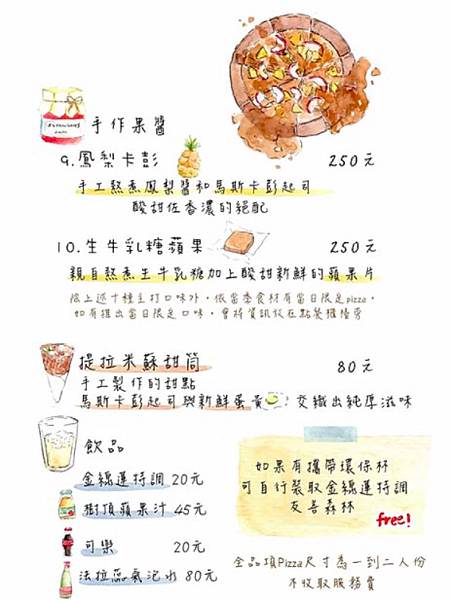 手作果醬
9.鳳梨卡彭
250元
手工熬煮鳳梨醬和馬斯卡彭起司
酸甜佐香濃的絕配
10.生牛乳糖蘋果
250元
親自熬煮生牛乳糖加上酸甜新鮮的蘋果片
除上述十種主打口味外,依當季食材有當日限定pizza,
如有推出當日限定口味,會將資訊放在點餐櫃檯旁
提拉米蘇甜筒
80元
手工製作的甜點
馬斯卡彭起司與新鮮蛋黃 交織出純厚滋味
飲品
金緹蓮特調 20元
樹頂蘋果汁 45元
可樂 20元
法拉蕊氣泡水 80元
如果有攜帶環保杯
可自行裝取金緹蓮特調
友善森林
free!
全品項Pizza尺寸為一到二人份
不收取服務費